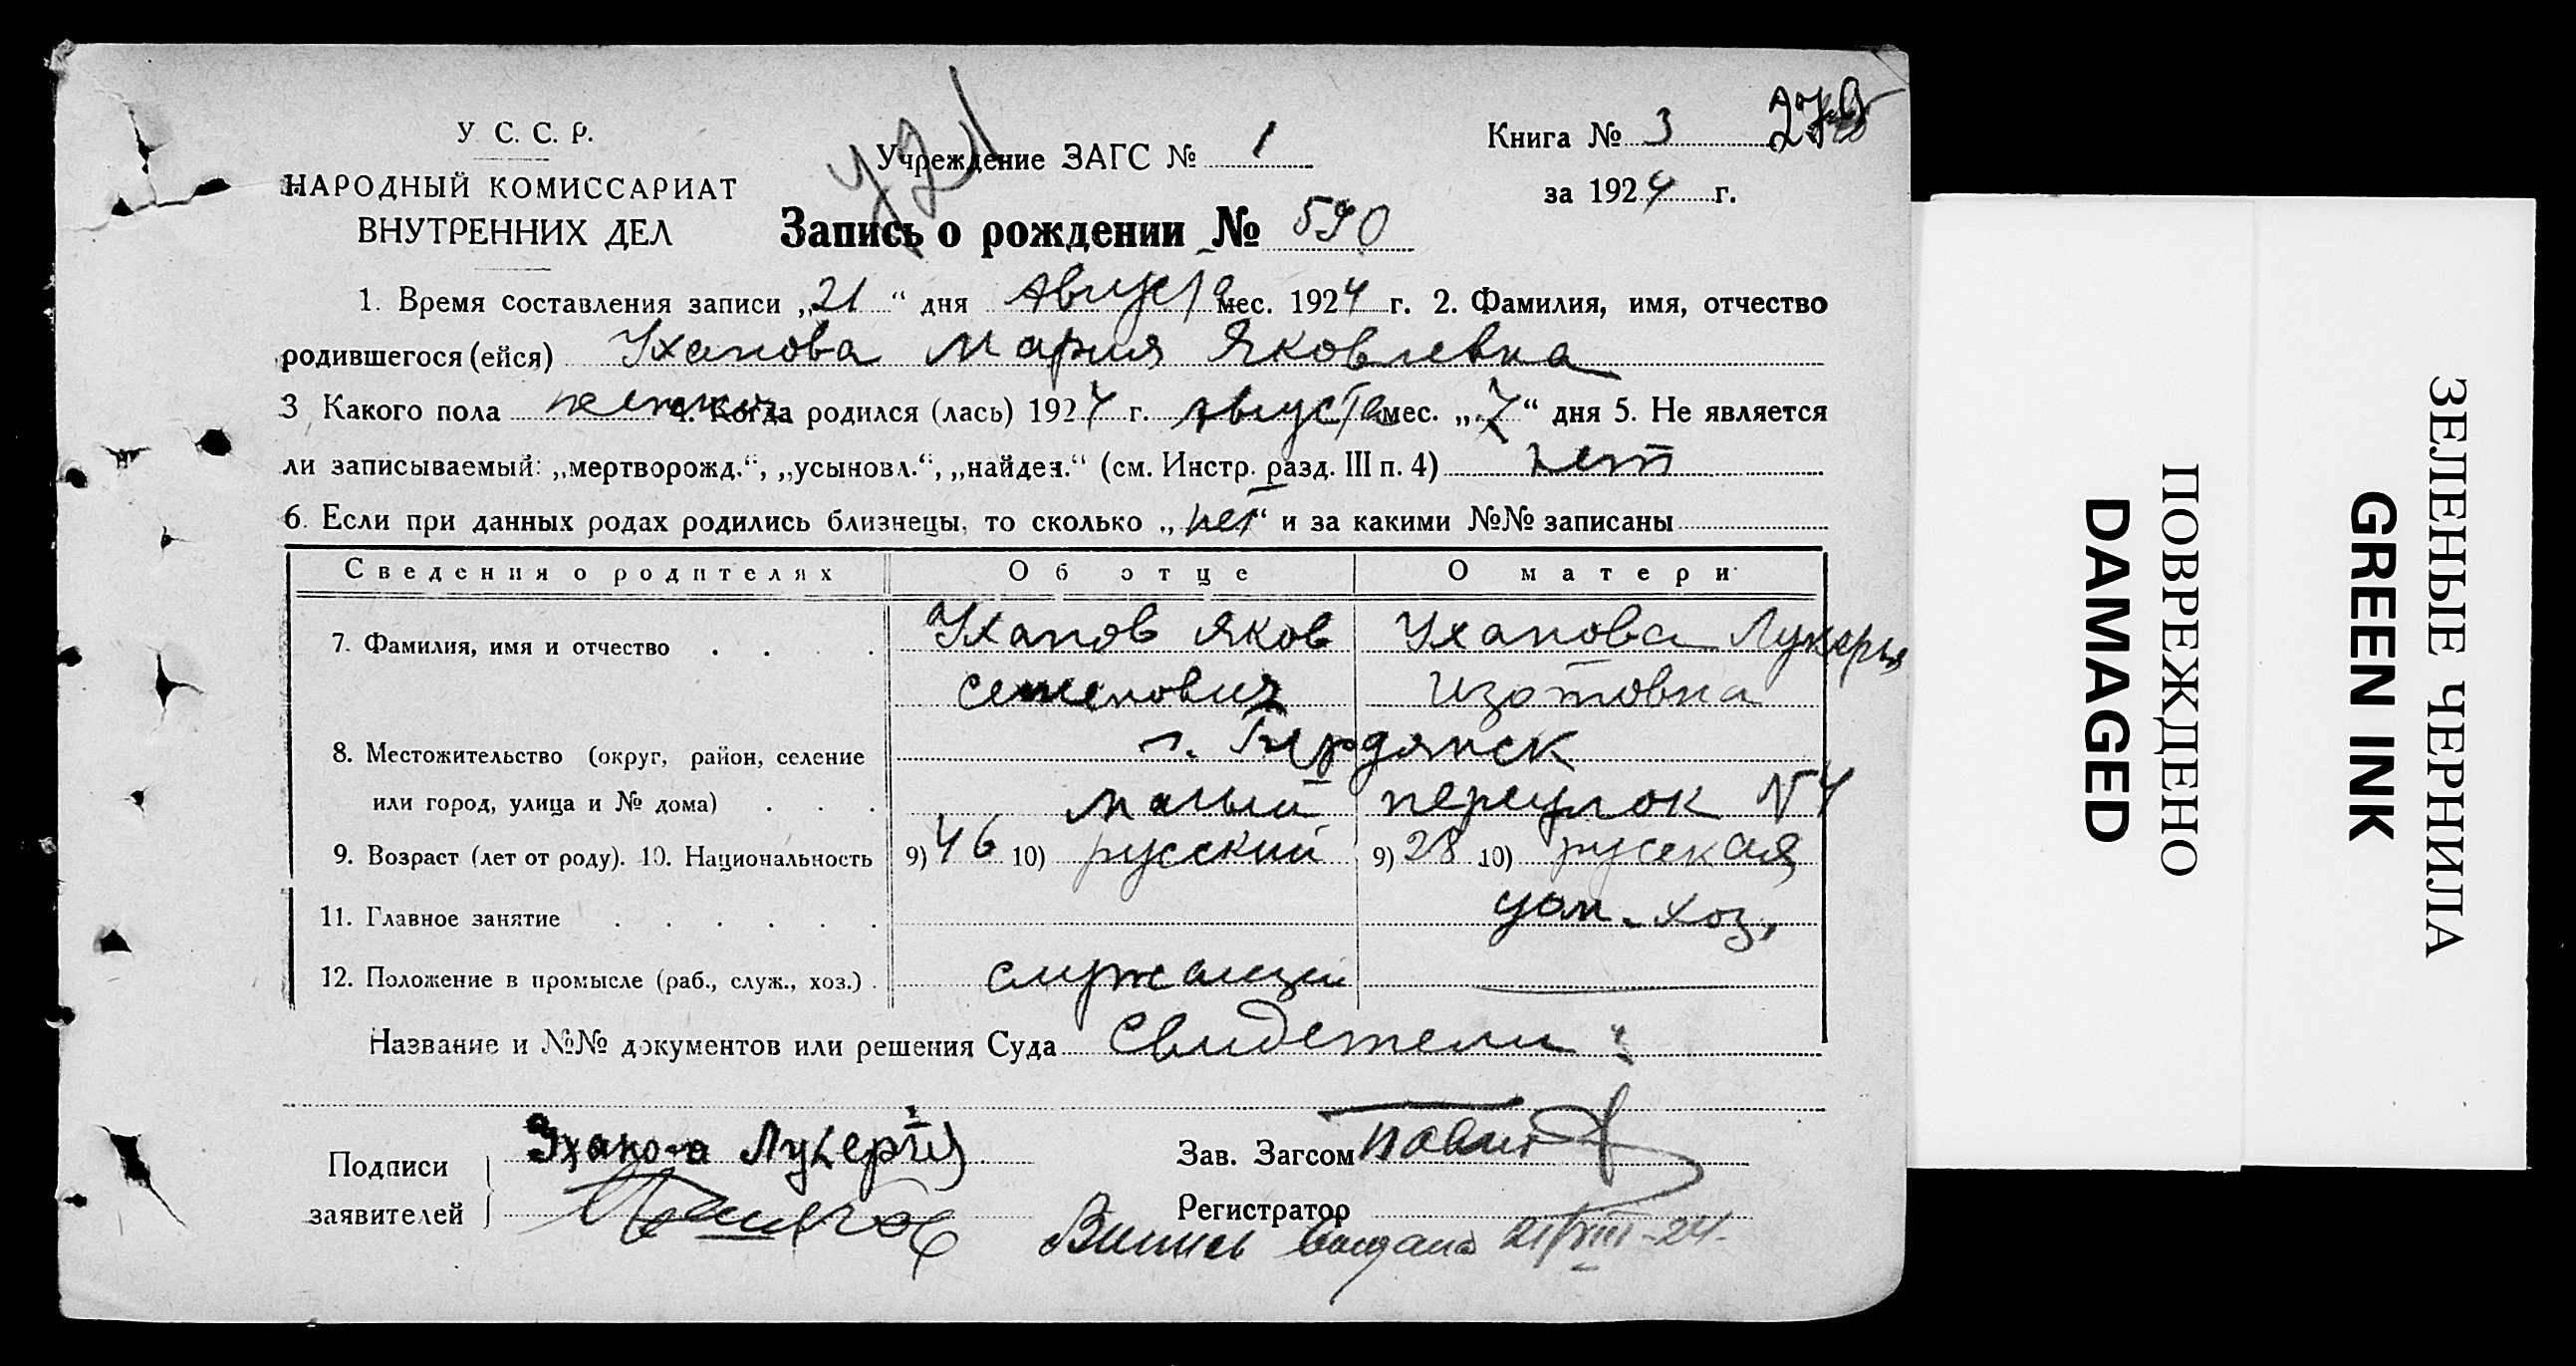 У. С. С. Р.
НАРОДНЫЙ КОМИССАРИАТ
ВНУТРЕННИХ ДЕЛ
Учреждение ЗАГС № 1
Книга № 3
за 1924 г.
Запись о рождении № 590
1. Время составления записи „21“ дня Августа мес. 1924 г. 2. Фамилия, имя, отчество
родившегося (ейся) Уханова Мария Яковлевна
3 Какого пола женский 4. Когда родился (лась) 1924 г. Августа мес. „7“ дня 5. Не является
ли записываемый: „мертворожд.“, „усыновл.“, „найден.“ (см. Инстр. разд. III п. 4) нет
6. Если при данных родах родились близнецы, то сколько „нет“ и за какими №№ записаны
Сведения о родителях Об отце О матери
7. Фамилия, имя и отчество . . . . Уханов Яков Уханова Лукерья
Семенович Изотовна
8. Местожительство (округ, район, селение г. Бердянск
или город, улица и № дома) . . . Малый переулок № 4
9. Возраст (лет от роду). 10. Национальность 9) 46 10) русский 9) 28 10) русская
11. Главное занятие . . . . . . дом. хоз.
12. Положение в промысле (раб., служ., хоз.) . служащий
Название и №№ документов или решения Суда Свидетели:
Подписи Уханова Лукерия Зав. Загсом
заявителей Регистратор
Выпись выдана 21/VIII-24.
ПОВРЕЖДЕНО
DAMAGED
ЗЕЛЕНЫЕ ЧЕРНИЛА
GREEN INK